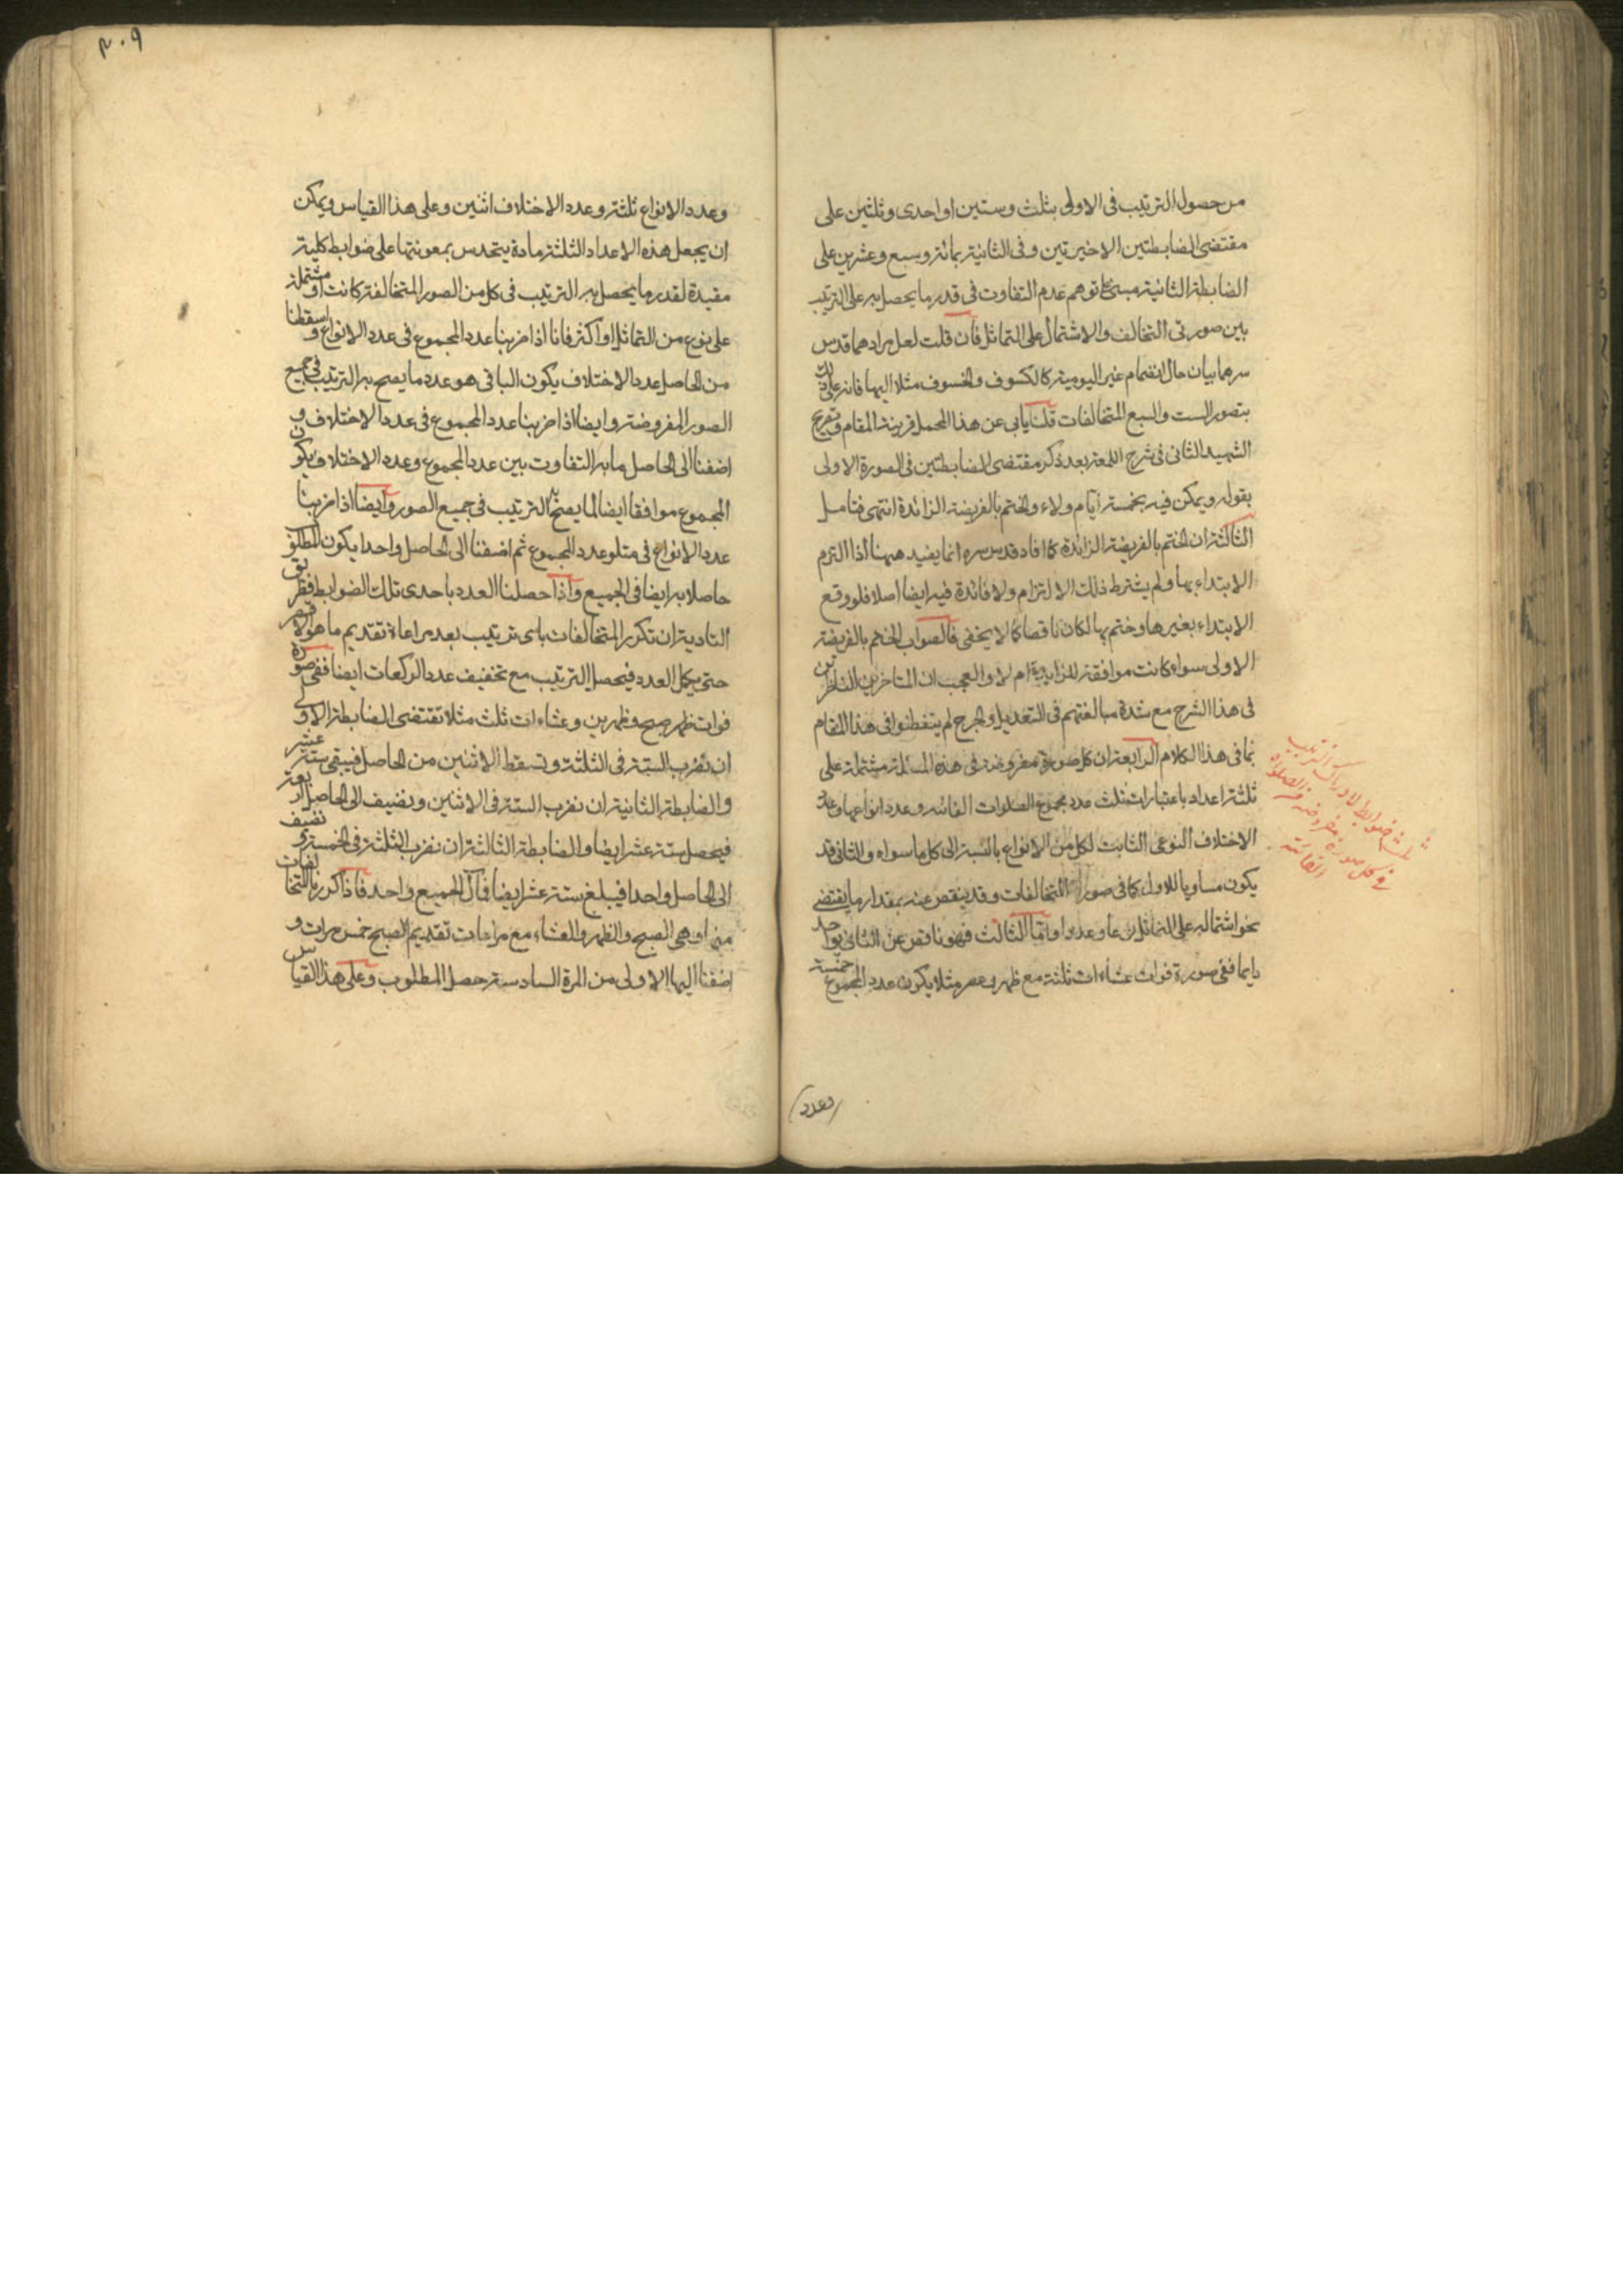 من حصول الترتیب فی الاولی بثلث وستین او احدی وثلثین علی
مقتضی الضابطتین الاخیرتین وفی الثانیة بمائة وسبع وعشرین علی
الضابطة الثانیة مبنی علی توهم عدم التفاوت فی قدر ما یحصل به علی الترتیب
بین صورتی التخالف والاشتمال علی التماثل فان قلت لعل مرادهما قدس
سرهما بیان حال انضمام غیر الیومیة کالکسوف والخسوف مثلا الیها فانه علی ذلک
یتصور الست والسبع المتخالفات قلنا یابی عن هذا المحمل قرینة المقام وتصریح
الشهید الثانی فی شرح اللمعة بعد ذکر مقتضی الضابطتین فی الصورة الاولی
بقوله ویمکن فیه بخمسة ایام ولاء والختم بالفریضة الزائدة انتهی فتامل
الثالثة ان الختم بالفریضة الزائدة کما افاد قدس سره انما یفید ههنا اذا التزم
الابتداء بها ولم یشترط ذلک الالتزام ولا فائدة فیه ایضا اصلا فلو وقع
الابتداء بغیرها وختم بها لکان ناقصا کما لا یخفی فالصواب الختم بالفریضة
الاولی سواء کانت موافقة للزایدة ام لا والعجب ان المتاخرین الناظرین
فی هذا الشرح مع شدة مبالغتهم فی التعدیل والجرح لم یتفطنوا فی هذا المقام
بما فی هذا الکلام الرابعة ان کل صورة مفروضة فی هذه المسئلة مشتملة علی
ثلثة اعداد باعتبارات ثلث عدد مجموع الصلوات الفائته وعدد انواعها وعدد
الاختلاف النوعی الثابت لکل من الانواع بالنسبة الی کل ما سواه والثانی قد
یکون مساویا للاول کما فی صور المتخالفات وقد ینقص عنه بمقدار ما یقتضی
نحو اشتماله علی التماثل نوعا وعددا واما الثالث فهو ناقص عن الثانی بواحد
دایما ففی صورة فوات عشاءات ثلثة مع ظهر وعصر مثلا یکون عدد المجموع خمسة
وعدد
ثلث ضوابط لادراک الترتیب
فی کل صورة مفروضة من الصلوة
الفائتة
۳۰۹
وعدد الانواع ثلثة وعدد الاختلاف اثنین وعلی هذا القیاس ویمکن
ان یجعل هذه الاعداد الثلثة مادة یتحدس بمعونتها علی ضوابط کلیة
مفیدة لقدر ما یحصل به الترتیب فی کل من الصور المتخالفة کانت او مشتملة
علی نوع من التماثل او اکثر فانا اذا ضربنا عدد المجموع فی عدد الانواع واسقطنا
من الحاصل عدد الاختلاف یکون الباقی هو عدد ما یصح به الترتیب فی جمیع
الصور المفروضة وایضا اذا ضربنا عدد المجموع فی عدد الاختلاف و
اضفنا الی الحاصل ما به التفاوت بین عدد المجموع وعدد الاختلاف یکون
المجموع موافقا ایضا لما یصح به الترتیب فی جمیع الصور وایضا اذا ضربنا
عدد الانواع فی متلو عدد المجموع ثم اضفنا الی الحاصل واحدا یکون المطلوب
حاصلا به ایضا فی الجمیع واذا حصلنا العدد باحدی تلک الضوابط فطریق
التادیة ان تکرر المتخالفات بای ترتیب بعد مراعاة تقدیم ما هو الاقصر
حتی یکمل العدد فیحصل الترتیب مع تخفیف عدد الرکعات ایضا ففی صورة
فوات ظهر صبح وظهرین وعشاءات ثلث مثلا تقتضی الضابطة الاولی
ان نضرب الستة فی الثلثة ونسقط الاثنین من الحاصل فیبقی ستة عشر
والضابطة الثانیة ان نضرب الستة فی الاثنین ونضیف الی الحاصل اربعة
فیحصل ستة عشر ایضا والضابطة الثالثة ان نضرب الثلثة فی الخمسة ونضیف
الی الحاصل واحدا فیبلغ ستة عشر ایضا فمآل الجمیع واحد فاذا کررنا المتخالفات
منها وهی الصبح والظهر والعشاء مع مراعات تقدیم الصبح خمس مرات و
اضفنا الیها الاولی من المرة السادسة حصل المطلوب وعلی هذا القیاس